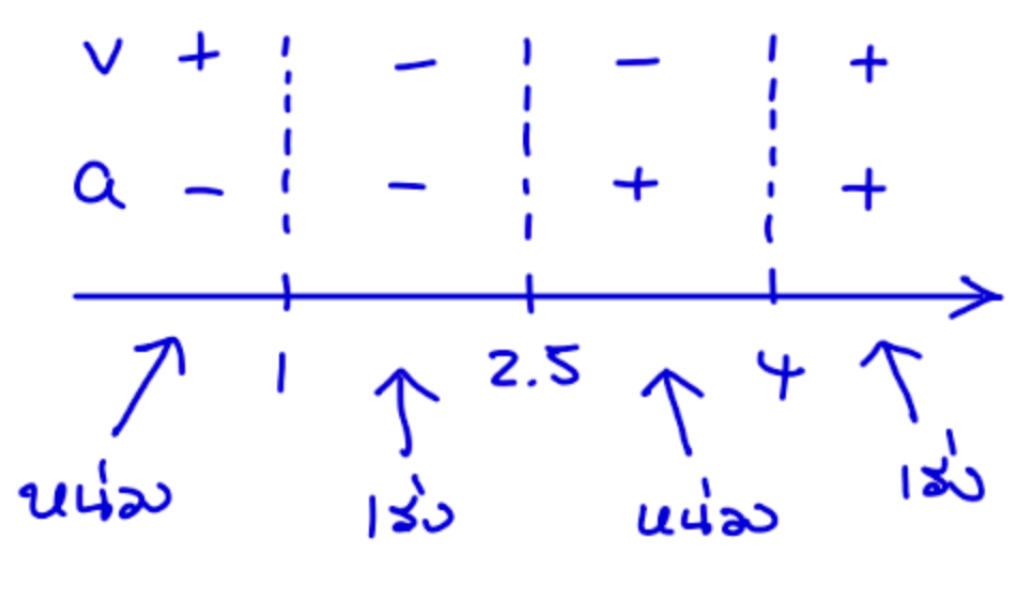 v + - - +
a - - + +
1 2.5 4
หน่วง เร่ง หน่วง เร่ง